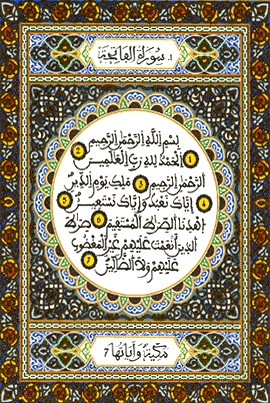 ١. سورة الفاتحة
بِسْمِ اللَّهِ الرَّحْمَٰنِ الرَّحِيمِ
١ الْحَمْدُ لِلَّهِ رَبِّ الْعَٰلَمِينَ ٢
الرَّحْمَٰنِ الرَّحِيمِ ٣ مَٰلِكِ يَوْمِ الدِّينِ
٤ إِيَّاكَ نَعْبُدُ وَإِيَّاكَ نَسْتَعِينُ ٥
اهْدِنَا الصِّرَٰطَ الْمُسْتَقِيمَ ٦ صِرَٰطَ
الَّذِينَ أَنْعَمْتَ عَلَيْهِمْ غَيْرِ الْمَغْضُوبِ
عَلَيْهِمْ وَلَا الضَّالِّينَ ٧
مكية وآياتها ٧